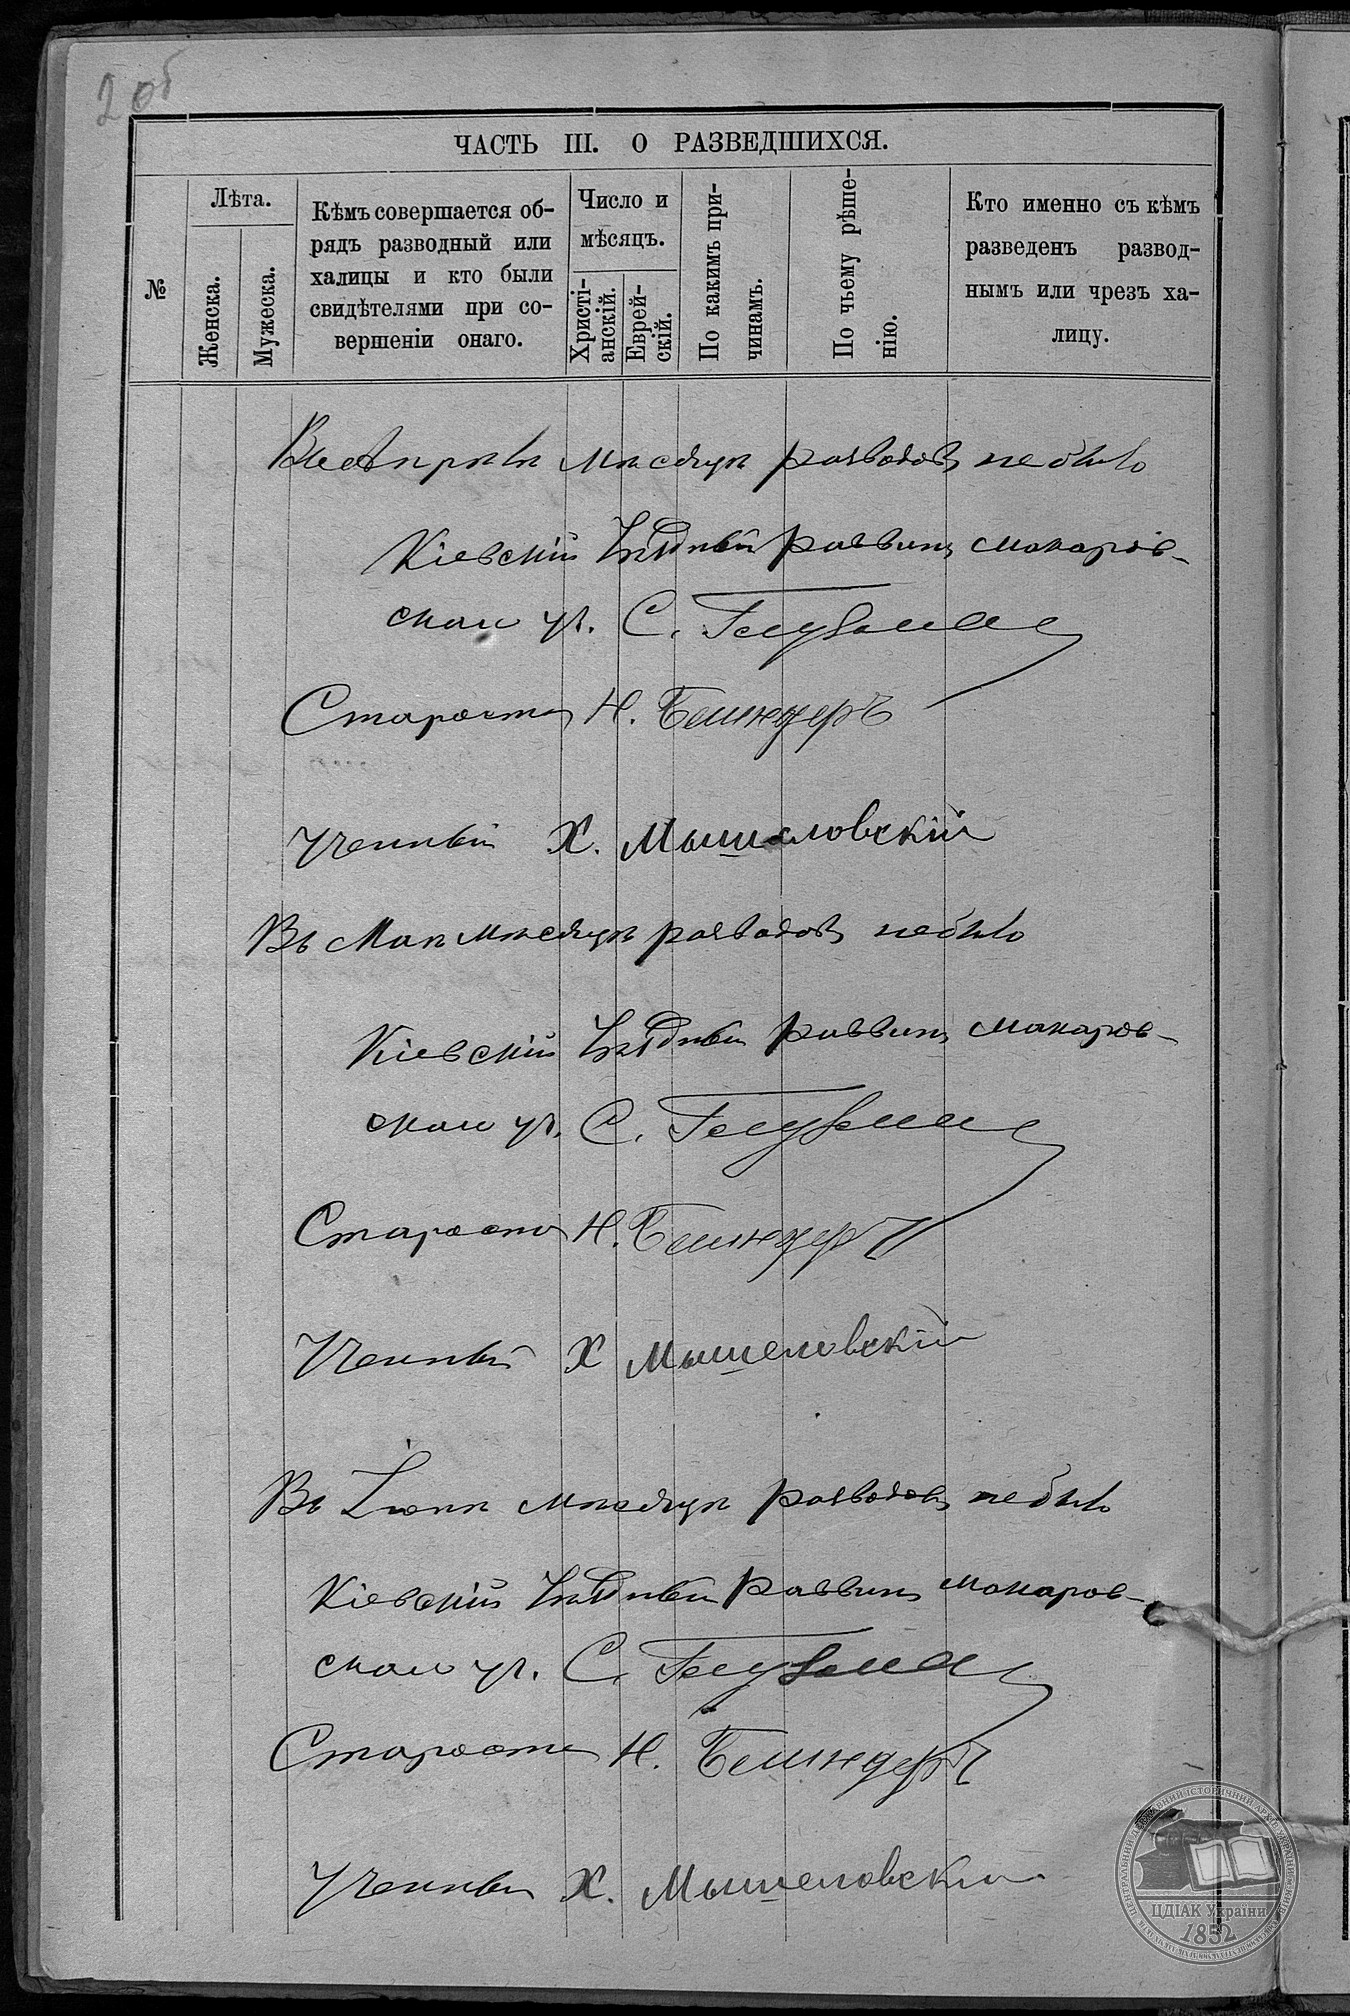 2 об
ЧАСТЬ III. О РАЗВЕДШИХСЯ.
№
Лѣта.
Женска.
Мужеска.
Кѣмъ совершается об-
рядъ разводный или
халицы и кто были
свидѣтелями при со-
вершеніи онаго.
Число и
мѣсяцъ.
Христі-
анскій.
Еврей-
скій.
По какимъ при-
чинамъ.
По чьему рѣше-
нію.
Кто именно съ кѣмъ
разведенъ развод-
нымъ или чрезъ ха-
лицу.
мѣсяцѣ разводовъ не было
Кіевскій Уѣздный Раввинъ Макаров-
скаго уч. С.
Староста Н.
Ученый Х. Мышеловскій
Въ Маѣ мѣсяцѣ разводовъ не было
Кіевскій Уѣздный Раввинъ Макаров-
скаго уч. С.
Староста Н.
Ученый Х Мышеловскій
Въ Іюнѣ мѣсяцѣ разводовъ не было
Кіевскій Уѣздный Раввинъ Макаров-
скаго уч. С.
Староста Н.
Ученый Х. Мышеловскій
ЦДІАК України
1852